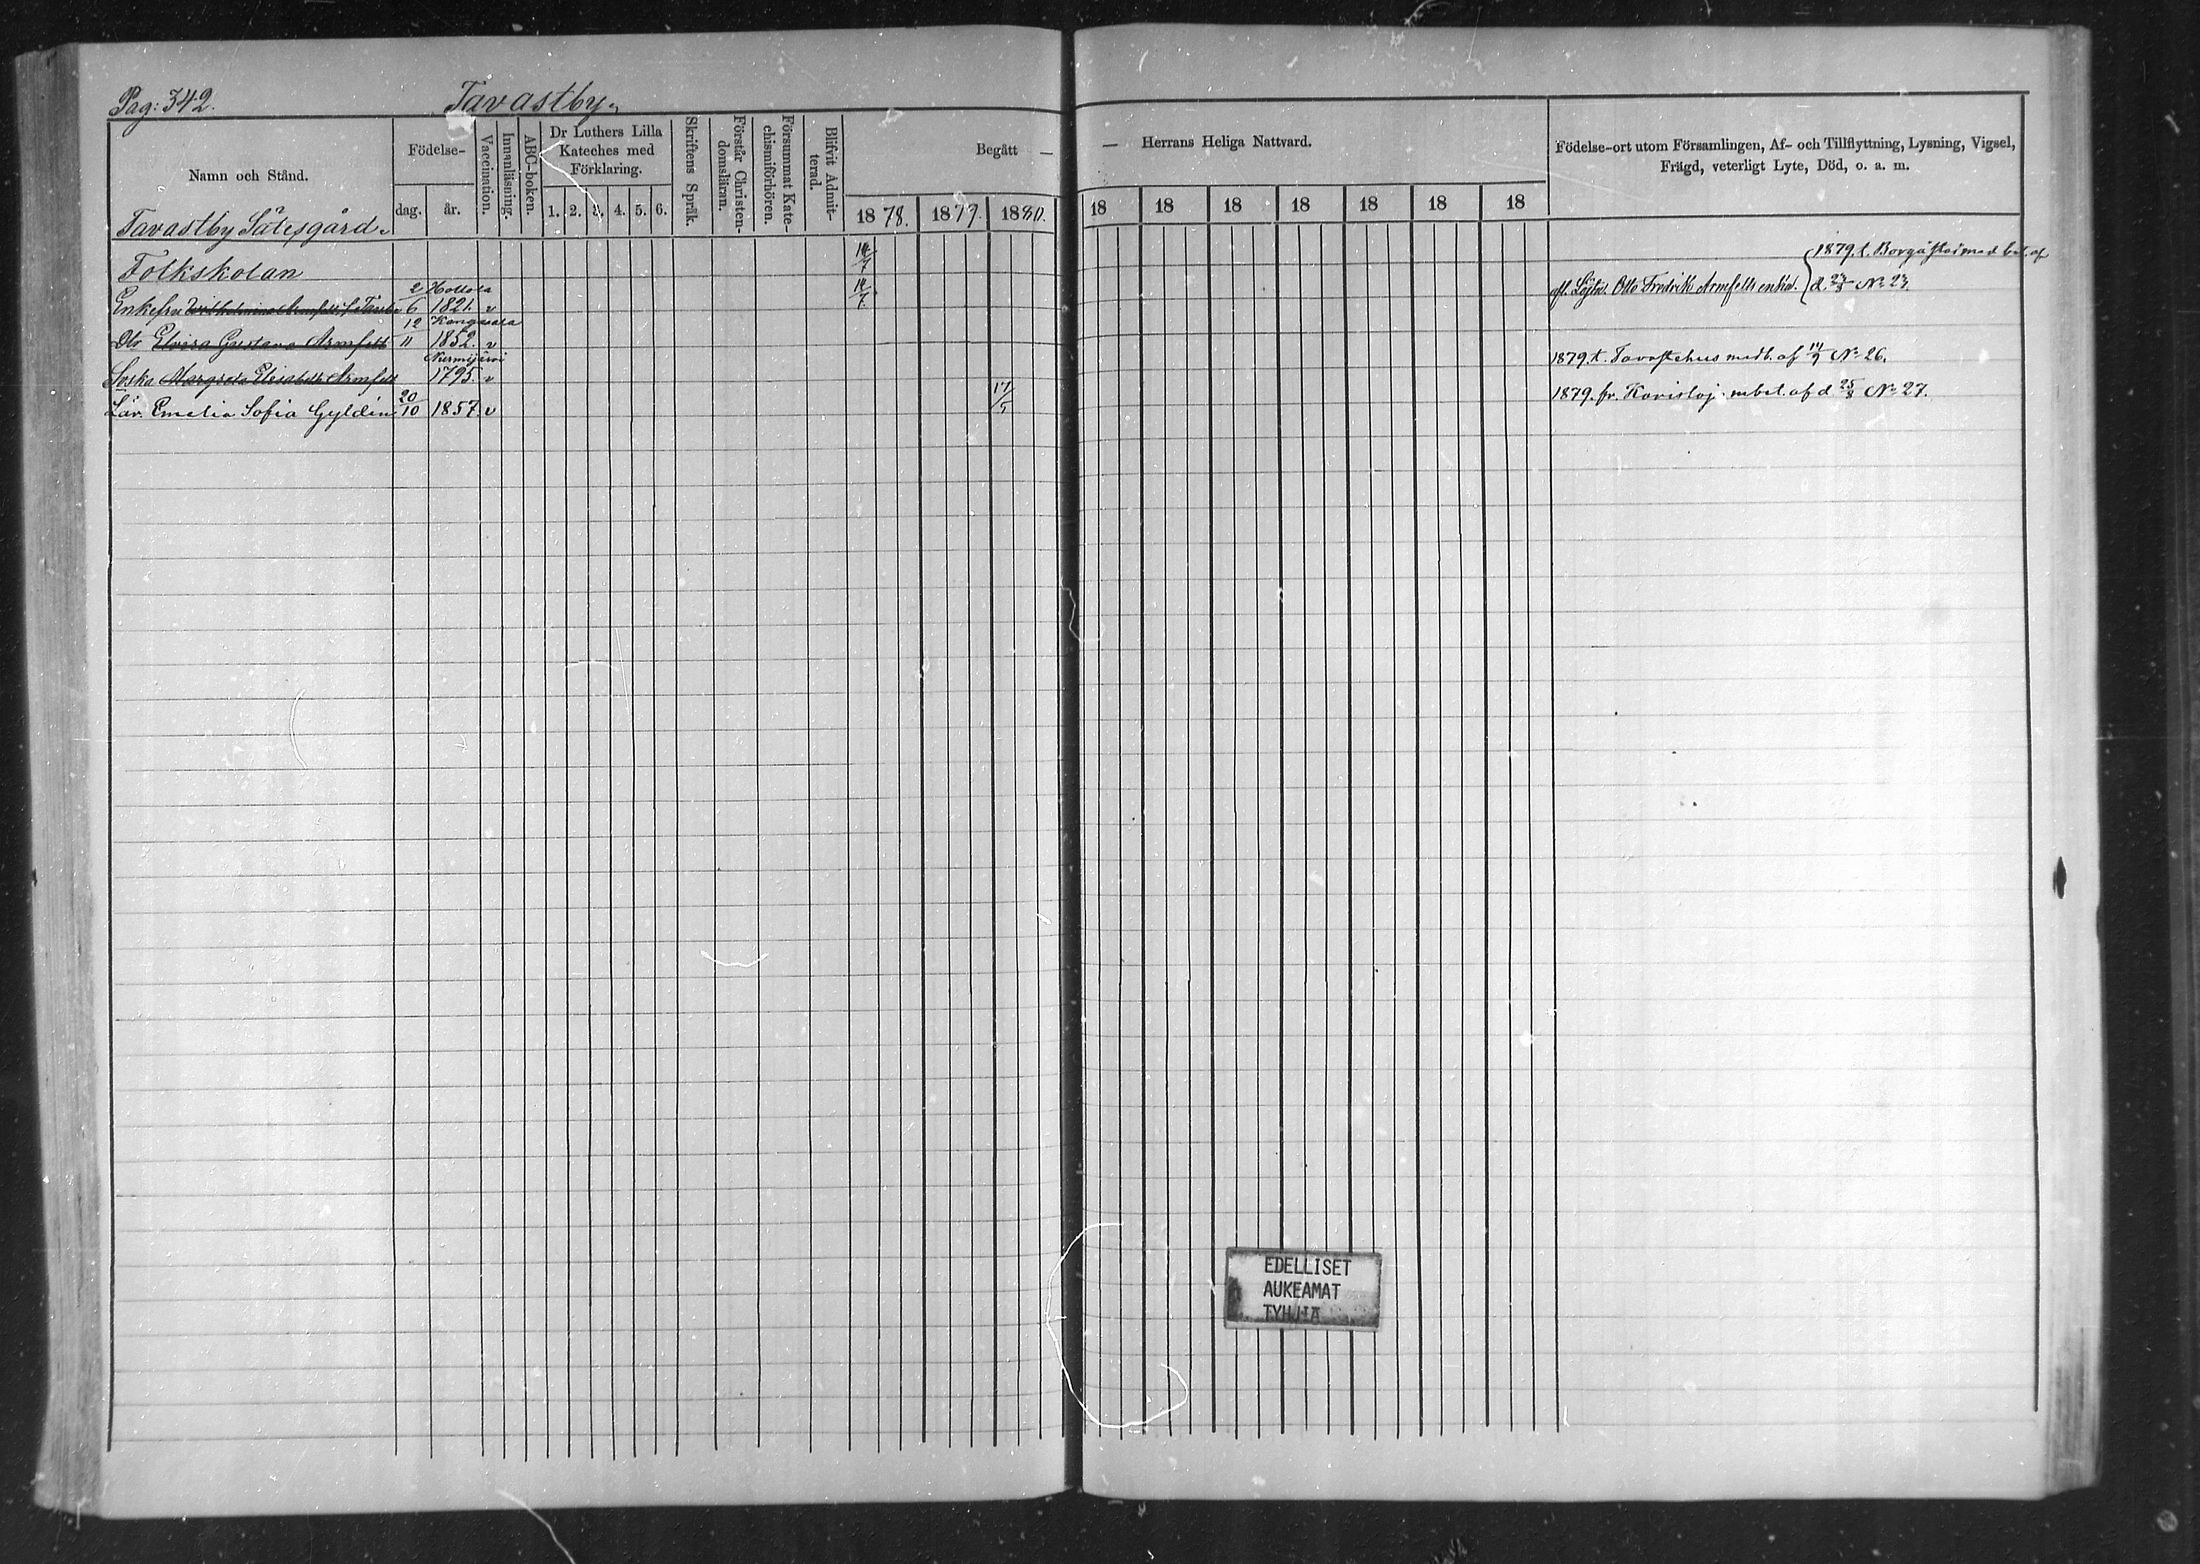 Pag: 342.
Tavastby,
Namn och Stånd.
Födelse-
dag.
år.
Vaccination.
Innanläsning.
ABC-boken.
Dr Luthers Lilla
Kateches med
Förklaring.
1. 2. 3. 4. 5. 6.
Skriftens Språk.
Förstår Christen-
domsläran.
Försummat Kate-
chismiförhören.
Blifvit Admit-
terad.
Begått —
— Herrans Heliga Nattvard.
1878. 1879. 1880. 18 18 18 18 18 18 18
Födelse-ort utom Församlingen, Af- och Tillflyttning, Lysning, Vigsel,
Frägd, veterligt Lyte, Död, o. a. m.
Tavastby Sätesgård.
Folkskolan
1879. t. Borgå med bet. af
2 Hollola
Enkefru Wilhelmina Armfelt f. 6 1821. v
afl. Otto Fredrik Armfelts enka. d. N:o 27.
12 Kangasala
Dtr Elvira Gustava Armfelt 11 1852. v
Nurmijärvi
Margreta Elisabeth Armfelt 1795. v
1879. t. Tavastehus medb. af N:o 26.
Lär. Emelia Sofia Gyldén 20/10 1857. v 17/5
1879. fr. Karisloj. mbet. af d. 25/8 N:o 27.
EDELLISET
AUKEAMAT
TYHJIÄ